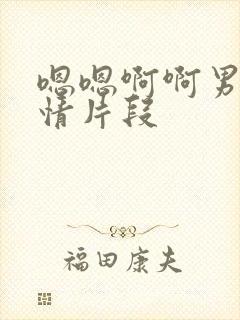 嗯嗯啊啊男
情片段
福田康夫